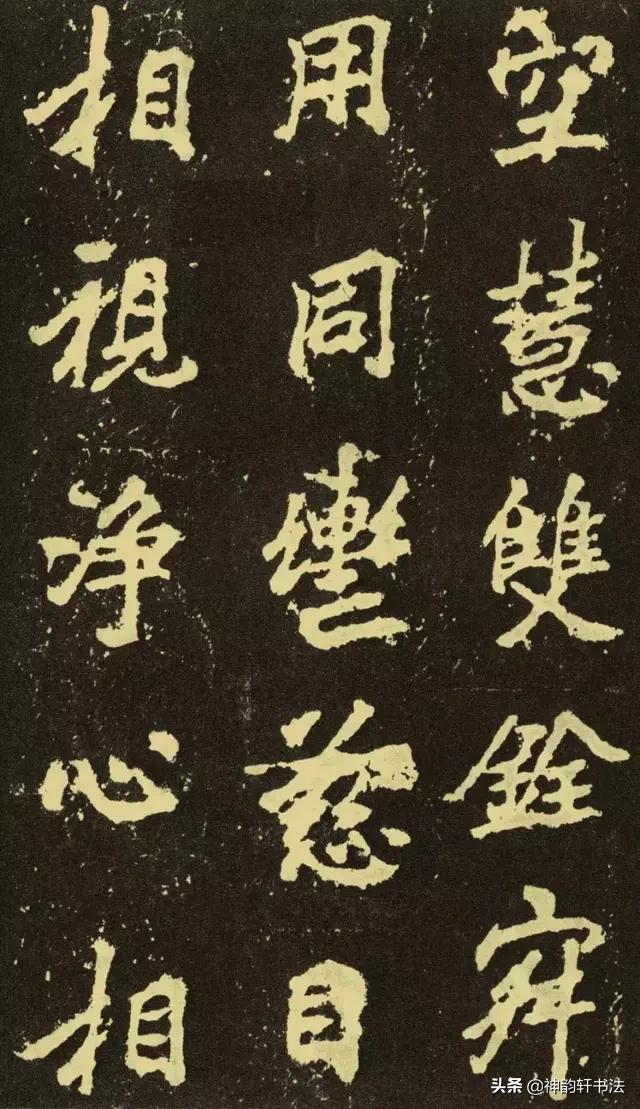 空慧雙銓寂
用同轡慈目
相視净心相
头条 @神韵轩书法